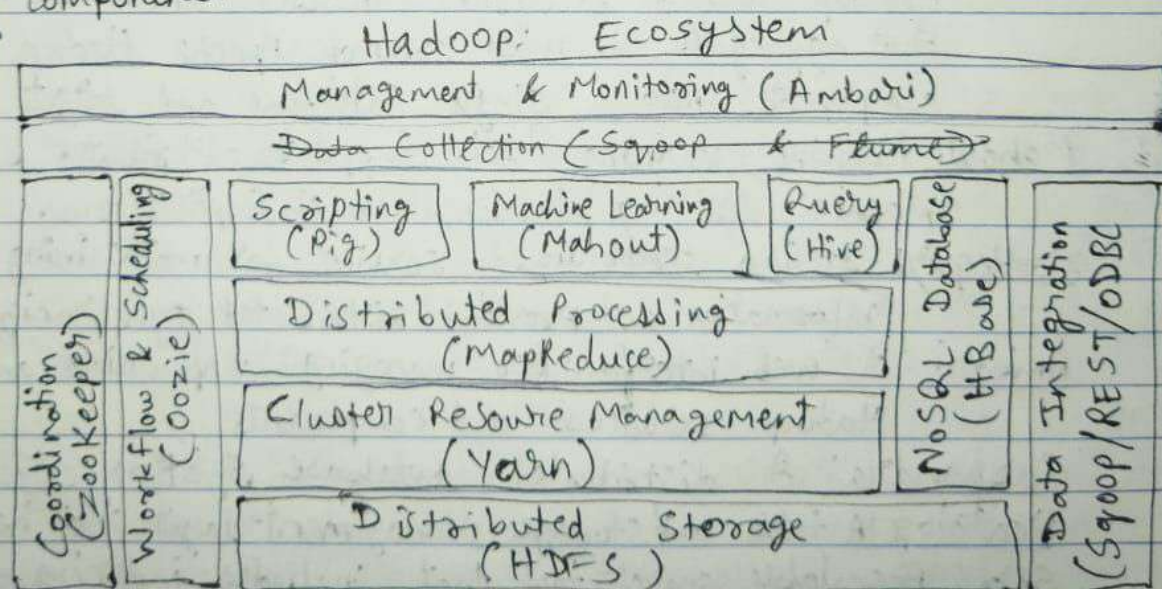 component
Hadoop: Ecosystem
Management & Monitoring (Ambari)
Data Collection (Sqoop & Flume)
Coordination
(ZooKeeper)
Workflow & Scheduling
(Oozie)
Scripting
(Pig)
Machine Learning
(Mahout)
Query
(Hive)
Distributed Processing
(MapReduce)
Cluster Resource Management
(Yarn)
NoSQL Database
(HBase)
Data Integration
(Sqoop/REST/ODBC
Distributed Storage
(HDFS)